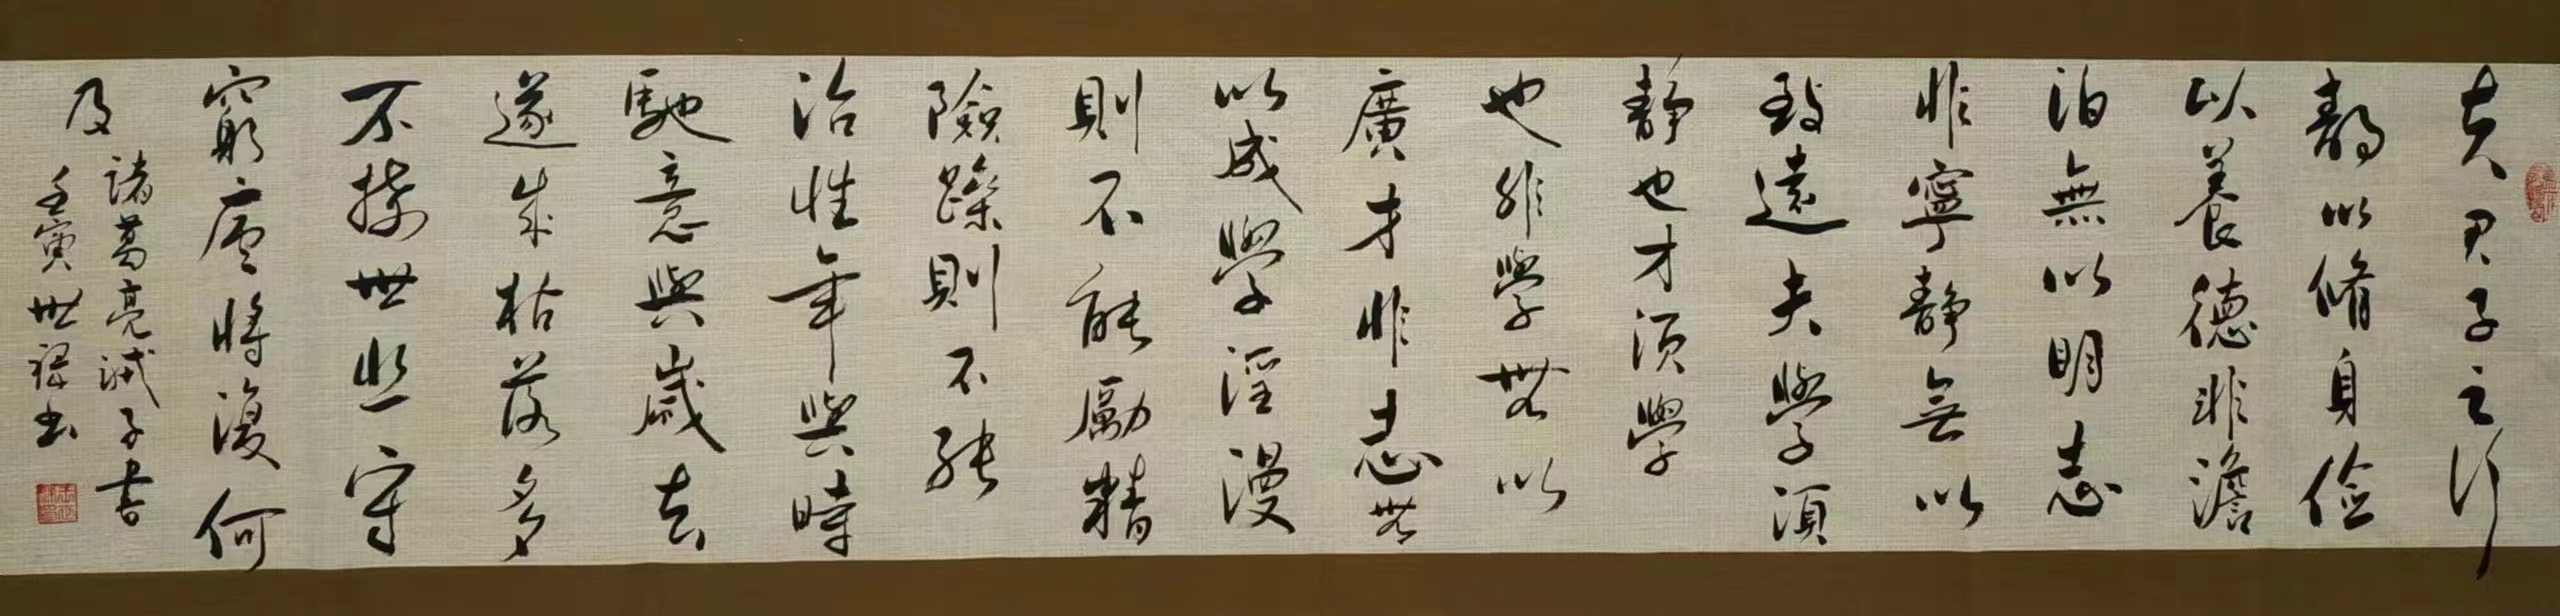 夫君子之行
静以脩身俭
以養德非澹
泊無以明志
非寧静無以
致遠夫學須
静也才須學
也非學無以
廣才非志無
以成學淫漫
則不能勵精
險躁則不能
治性年與時
馳意與歲去
遂成枯落多
不接世悲守
窮廬將復何
及
諸葛亮誡子書
壬寅世禄书